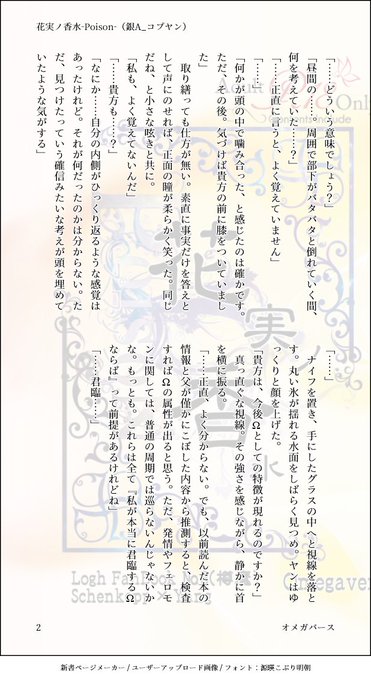 花実ノ香水-Poison-（銀A_コプヤン）
「……どういう意味でしょう？」
「昼間の……。周囲で部下がバタバタと倒れていく間、
何を考えていた……？」
「……正直に言うと、よく覚えていません」
「……」
「何かが頭の中で噛み合った、と感じたのは確かです。
ただ、その後。気づけば貴方の前に膝をついていまし
た」
　取り繕っても仕方が無い。素直に事実だけを答えと
して声にのせれば、正面の瞳が柔らかく笑った。同じ
だね、と小さな呟きと共に。
「私も、よく覚えてないんだ」
「……貴方も……？」
「なにか……自分の内側がひっくり返るような感覚は
あったけれど。それが何だったのかは分からない。た
だ、見つけたっていう確信みたいな考えが頭を埋めて
いたような気がする」
「……」
　ナイフを置き、手にしたグラスの中へと視線を落と
す。丸い氷が揺れる水面をしばらく見つめ。ヤンはゆ
っくりと顔を上げた。
「貴方は、今後Ωとしての特徴が現れるのですか？」
　真っ直ぐな視線。その強さを感じながら、静かに首
を横に振る。
「……正直、よく分からない。でも、以前読んだ本の
情報と父が僅かにこぼした内容から推測すると、検査
すればΩの属性が出ると思う。ただ、発情やフェロモ
ンに関しては、普通の周期では巡らないんじゃないか
な。もっとも。これらは全て『私が本当に君臨するΩ
ならば』って前提があるけれどね」
「……君臨……」
花実ノ香水
2
オメガバース
新書ページメーカー / ユーザーアップロード画像 / フォント：源暎こぶり明朝